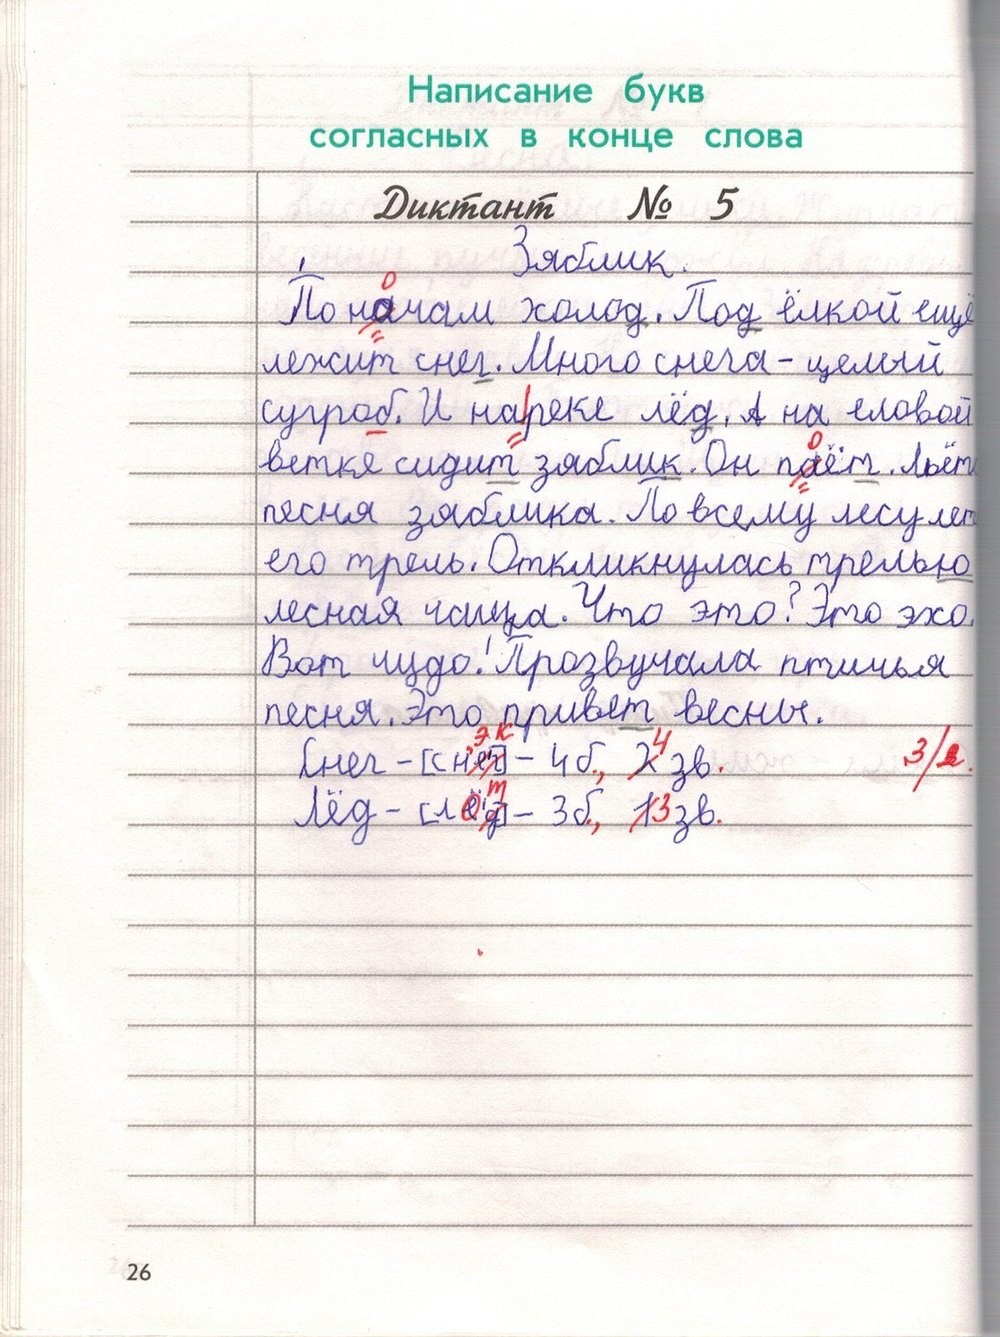 Написание букв
согласных в конце слова
Диктант № 5
Зяблик.
По начам холод. Под ёлкой ещё
лежит снег. Много снега - целый
сугроб. И нареке лёд. А на еловой
ветке сидит зяблик. Он паёт. Льётся
песня зяблика. По всему лесу
его трель. Откликнулась трелью
лесная чаща. Что это? Это эхо.
Вот чудо! Прозвучала птичья
песня. Это привет весны.
Снег - [снег] - 4 б., 2 4 зв. 3/2.
Лёд - [лёд] - 3 б., 1 3 зв.
26